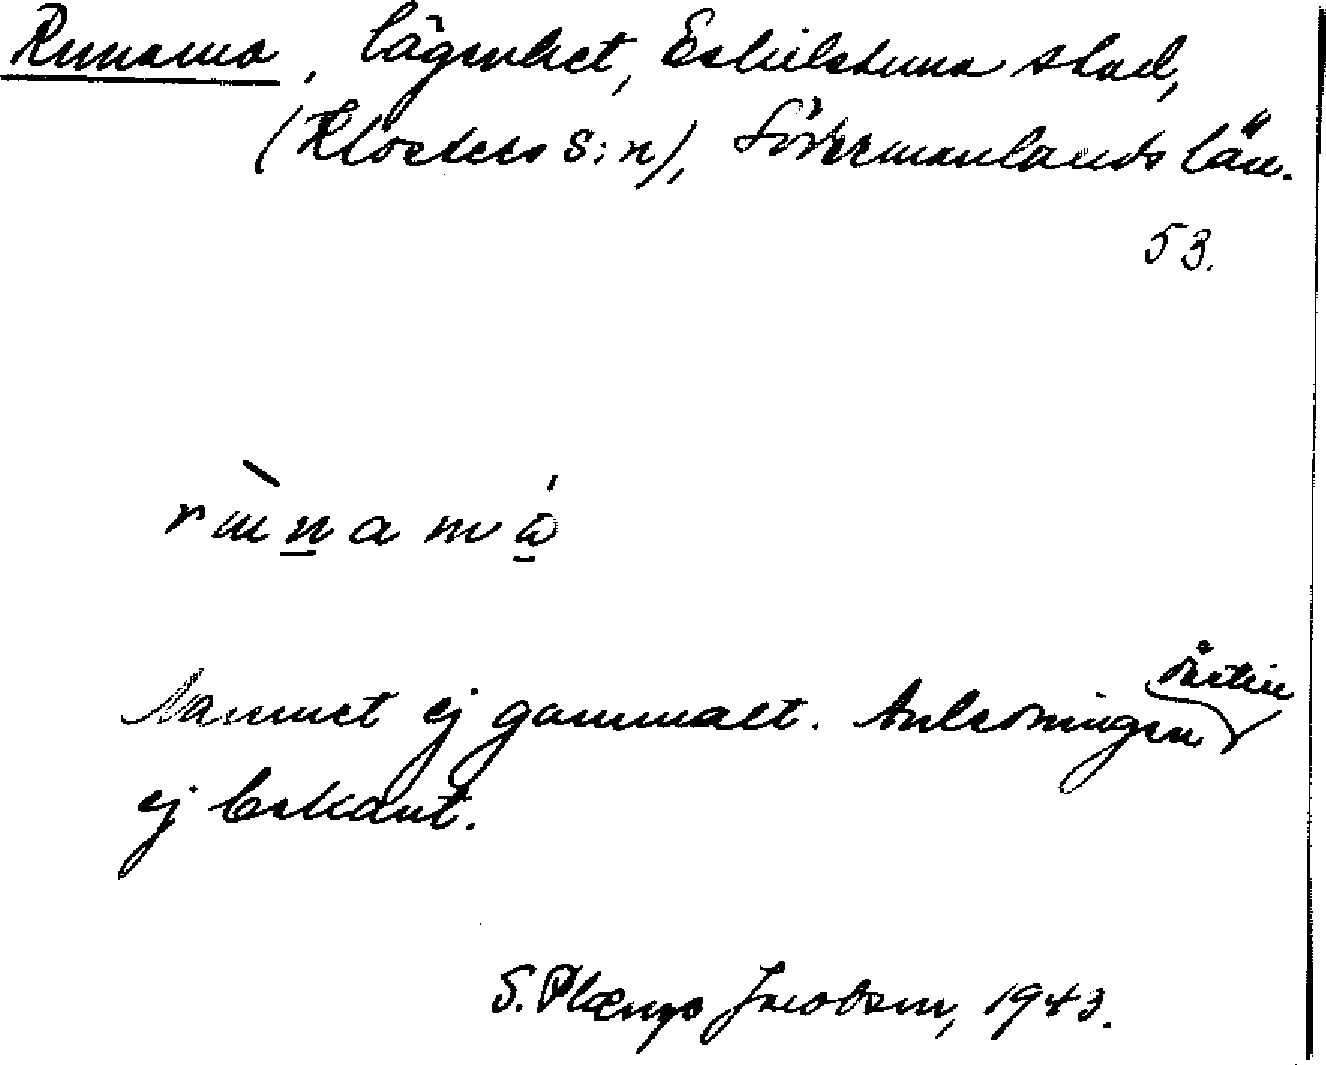 Runamo, lägenhet, Eskilstuna stad,
(Klosters s:n), Södermanlands län.
53.
rùnamó
Namnet ej gammalt. Anledningen därtill
ej bekant.
S. Plænge Jacobson, 1943.